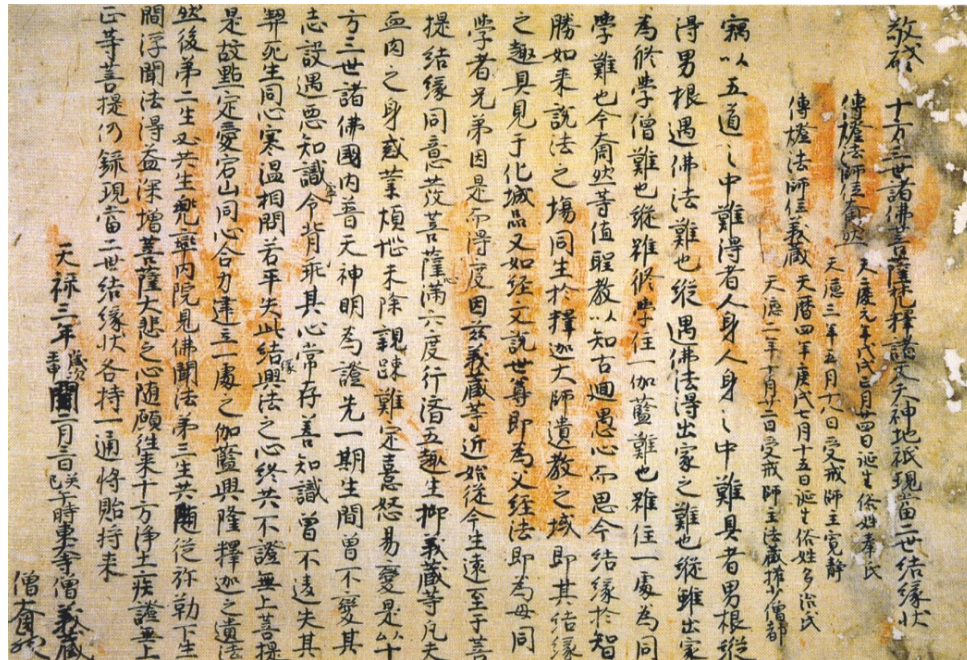 敬啓 十方三世諸佛菩薩梵釋諸天天神地祇現當二世結緣狀
傳燈法師位奝然 天慶元年戊戌正月廿四日誕生俗姓秦氏
天德三年五月十八日受戒師主寬靜
傳燈法師位義藏 天曆四年庚戌七月十五日誕生俗姓多治氏
天德二年十月廿二日受戒師主法藏權少僧都
竊以五道之中難得者人身人身之中難具者男根縱
得男根遇佛法難也縱遇佛法得出家之難也縱雖出家
為修學僧難也縱雖修學住一伽藍難也雖住一處為同
學難也今奝然等值聖教以知古廻愚心而思今結緣於智
勝如来說法之場同生於釋迦大師遺教之域即其結緣
之趣具見于化城品又如經文說世尊即為父經法即為母同
學者兄弟因是而得度因茲義藏等近始從今生遠至于菩
提結緣同意發菩薩心滿六度行濟五趣生抑義藏等凡夫
血肉之身惑業煩惱未除親疎難定喜怒易變是以十
方三世諸佛國內普天神明為證先一期生間曾不變其
志設遇惡知識令背乖其心常存善知識曾不遠失其
契死生同心寒溫相問若平失此結緣興法之心終共不證無上菩提
是故點定愛宕山同心合力建立一處之伽藍興隆釋迦之遺法
然後第二生又共生兜率內院見佛聞法第三生共隨從弥勒下生
閻浮聞法得益深增菩薩大悲之心随願往来十方淨土疾證無上
正等菩提仍錄現當二世結緣狀各持一通將貽将来
天祿三年歲次壬申閏二月三日癸巳午時東大寺僧義藏
僧奝然